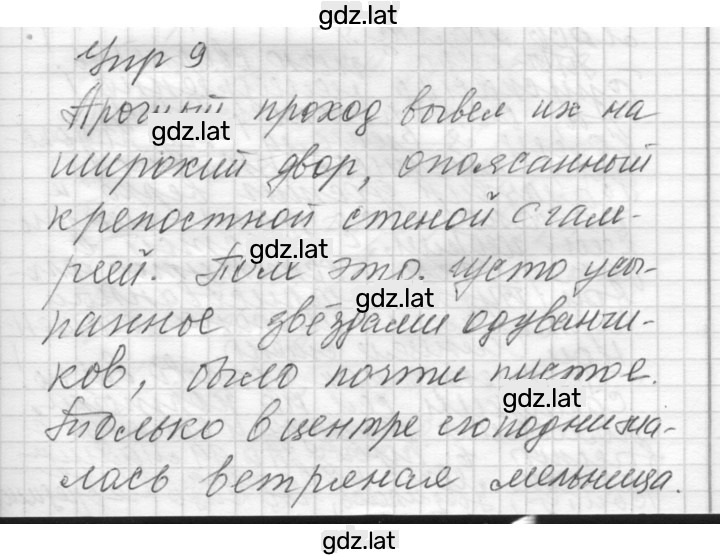 gdz.lat
Упр 9
Арочный проход вывел их на
gdz.lat
широкий двор, опоясанный
крепостной стеной с гале-
gdz.lat
реей. Поле это. густо усы-
gdz.lat
панное звёздами одуванчи-
ков, было почти пустое.
gdz.lat
Только в центре его поднима-
лась ветряная мельница.
gdz.lat